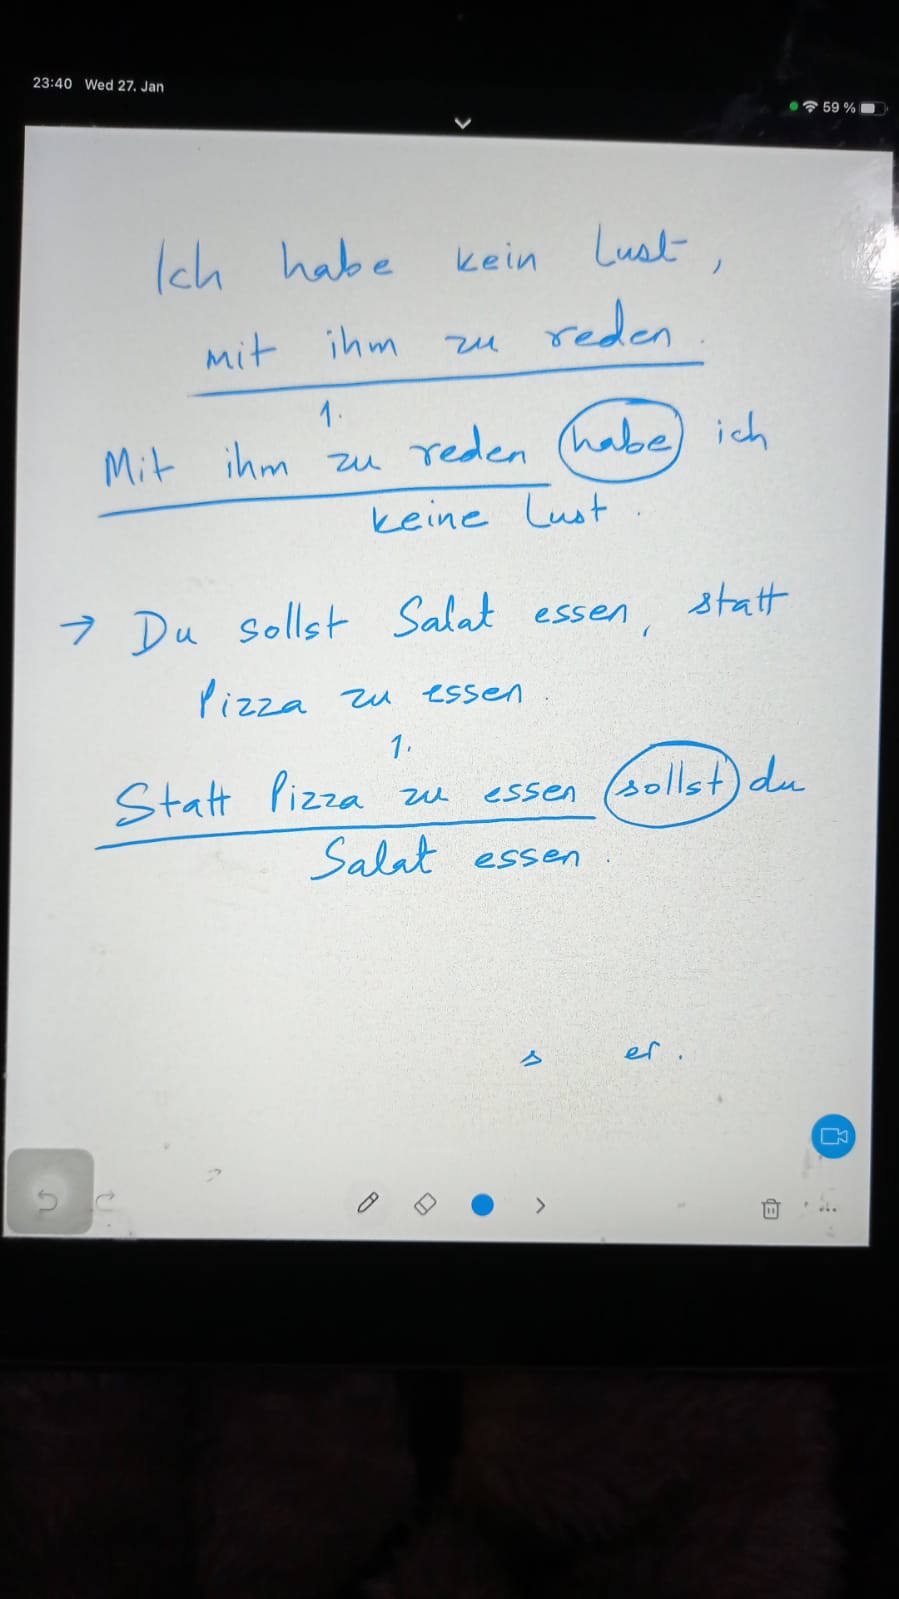 23:40 Wed 27. Jan
59 %
Ich habe kein Lust,
mit ihm zu reden.
1.
Mit ihm zu reden habe ich
keine Lust.
→ Du sollst Salat essen, statt
Pizza zu essen.
1.
Statt Pizza zu essen sollst du
Salat essen.
s er.